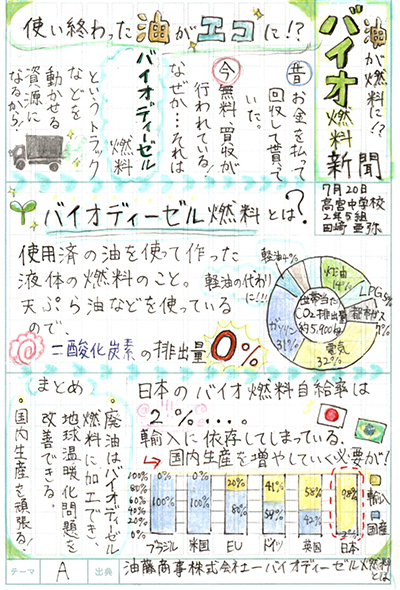 油が燃料に!?
バイオ燃料
新聞
使い終わった油がエコに!?
昔 お金を払って
回収して貰って
いた。
今 無料、買収が
行われている!
なぜか…それは
バイオディーゼル
燃料
というトラック
などを
動かせる
資源に
なるから!
7月20日
高宮中学校
2年5組
田崎 亜弥
バイオディーゼル燃料とは?
使用済の油を使って作った
液体の燃料のこと。
天ぷら油などを使っている
ので、
軽油の代わり
に!!!
二酸化炭素の排出量0%
世帯当たり
CO₂排出量
約3,900kg
軽油4%
灯油
14%
LPG5%
都市ガス
7%
電気
32%
ガソリン
31%
まとめ
廃油はバイオディーゼル
燃料に加工でき、
地球温暖化問題を
改善できる。
国内生産を頑張る!
日本のバイオ燃料自給率は
2%…。
輸入に依存してしまっている。
国内生産を増やしていく必要が!
0% 0% 20% 41% 58% 98%
100% 100% 80% 59% 42% 2%
ブラジル 米国 EU ドイツ 英国 日本
輸入
国産
テーマ A 出典 油藤商事株式会社ーバイオディーゼル燃料とは